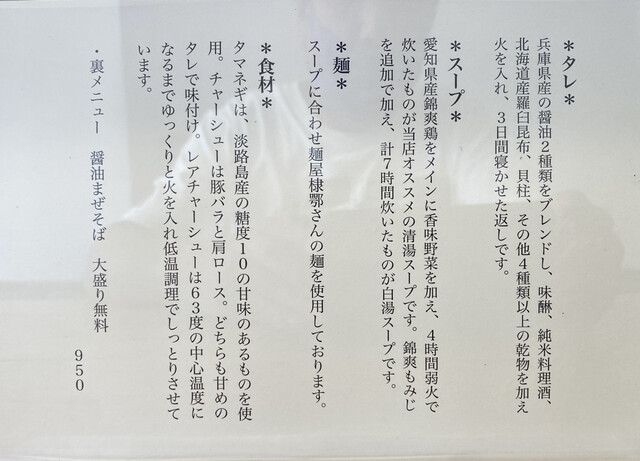 ＊タレ＊
兵庫県産の醤油２種類をブレンドし、味醂、純米料理酒、
北海道産羅臼昆布、貝柱、その他４種類以上の乾物を加え
火を入れ、３日間寝かせた返しです。
＊スープ＊
愛知県産錦爽鶏をメインに香味野菜を加え、４時間弱火で
炊いたものが当店オススメの清湯スープです。錦爽もみじ
を追加で加え、計７時間炊いたものが白湯スープです。
＊麺＊
スープに合わせ麺屋棣鄂さんの麺を使用しております。
＊食材＊
タマネギは、淡路島産の糖度１０の甘味のあるものを使
用。チャーシューは豚バラと肩ロース。どちらも甘めの
タレで味付け。レアチャーシューは６３度の中心温度に
なるまでゆっくりと火を入れ低温調理でしっとりさせて
います。
・裏メニュー　醤油まぜそば　大盛り無料
９５０